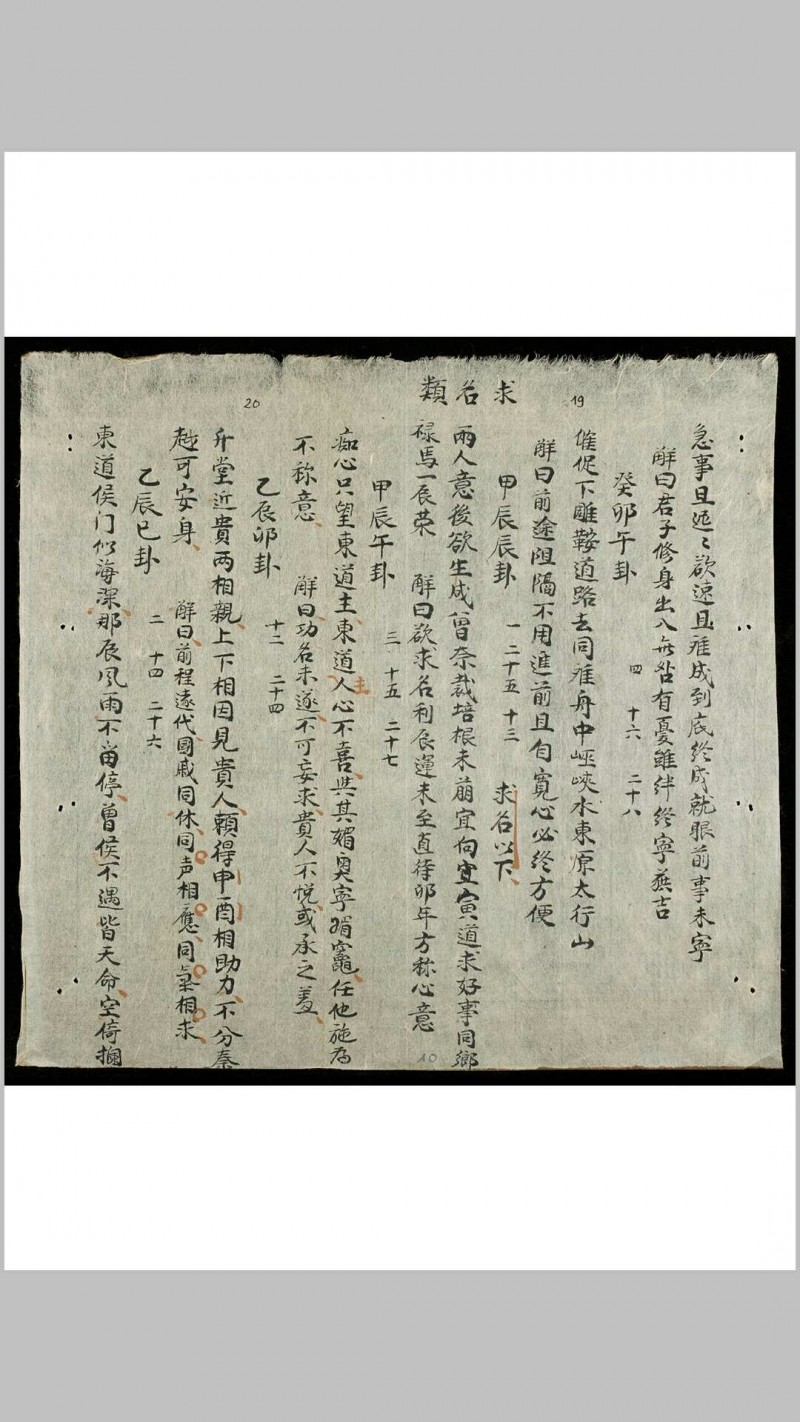 急事且延〻欲速且难成到底终成就眼前事未寧
解曰君子修身出入無咎有憂雖絆終寧燕吉
癸卯午卦 四 十六 二十八
催促下雕鞍道路去同难舟中峽水東原太行山
解曰前途阻隔不用進前且自寬心必终方便
19
求名類
甲辰辰卦 一 二十五 十三 求名以下
兩人意後欲生成曾奈栽培根未萠宜向寅道求好事同鄉
禄馬一辰荣 解曰欲求名利辰運未至直待卯年方称心意
10
甲辰午卦 三 十五 二十七
痴心只望東道主東道人主心不喜與其媚奥寧媚竈任他施為
不称意 解曰功名未遂不可妄求貴人不悦或承之羞
20
乙辰卯卦 十二 二十四
升堂近貴两相親上下相因見貴人頼得申酉相助力不分秦
越可安身 解曰前程遠代國戚同休同声相應同氣相求
乙辰巳卦 二 十四 二十六
東道侯门似海深那辰風雨不留停曾侯不遇皆天命空倚欄